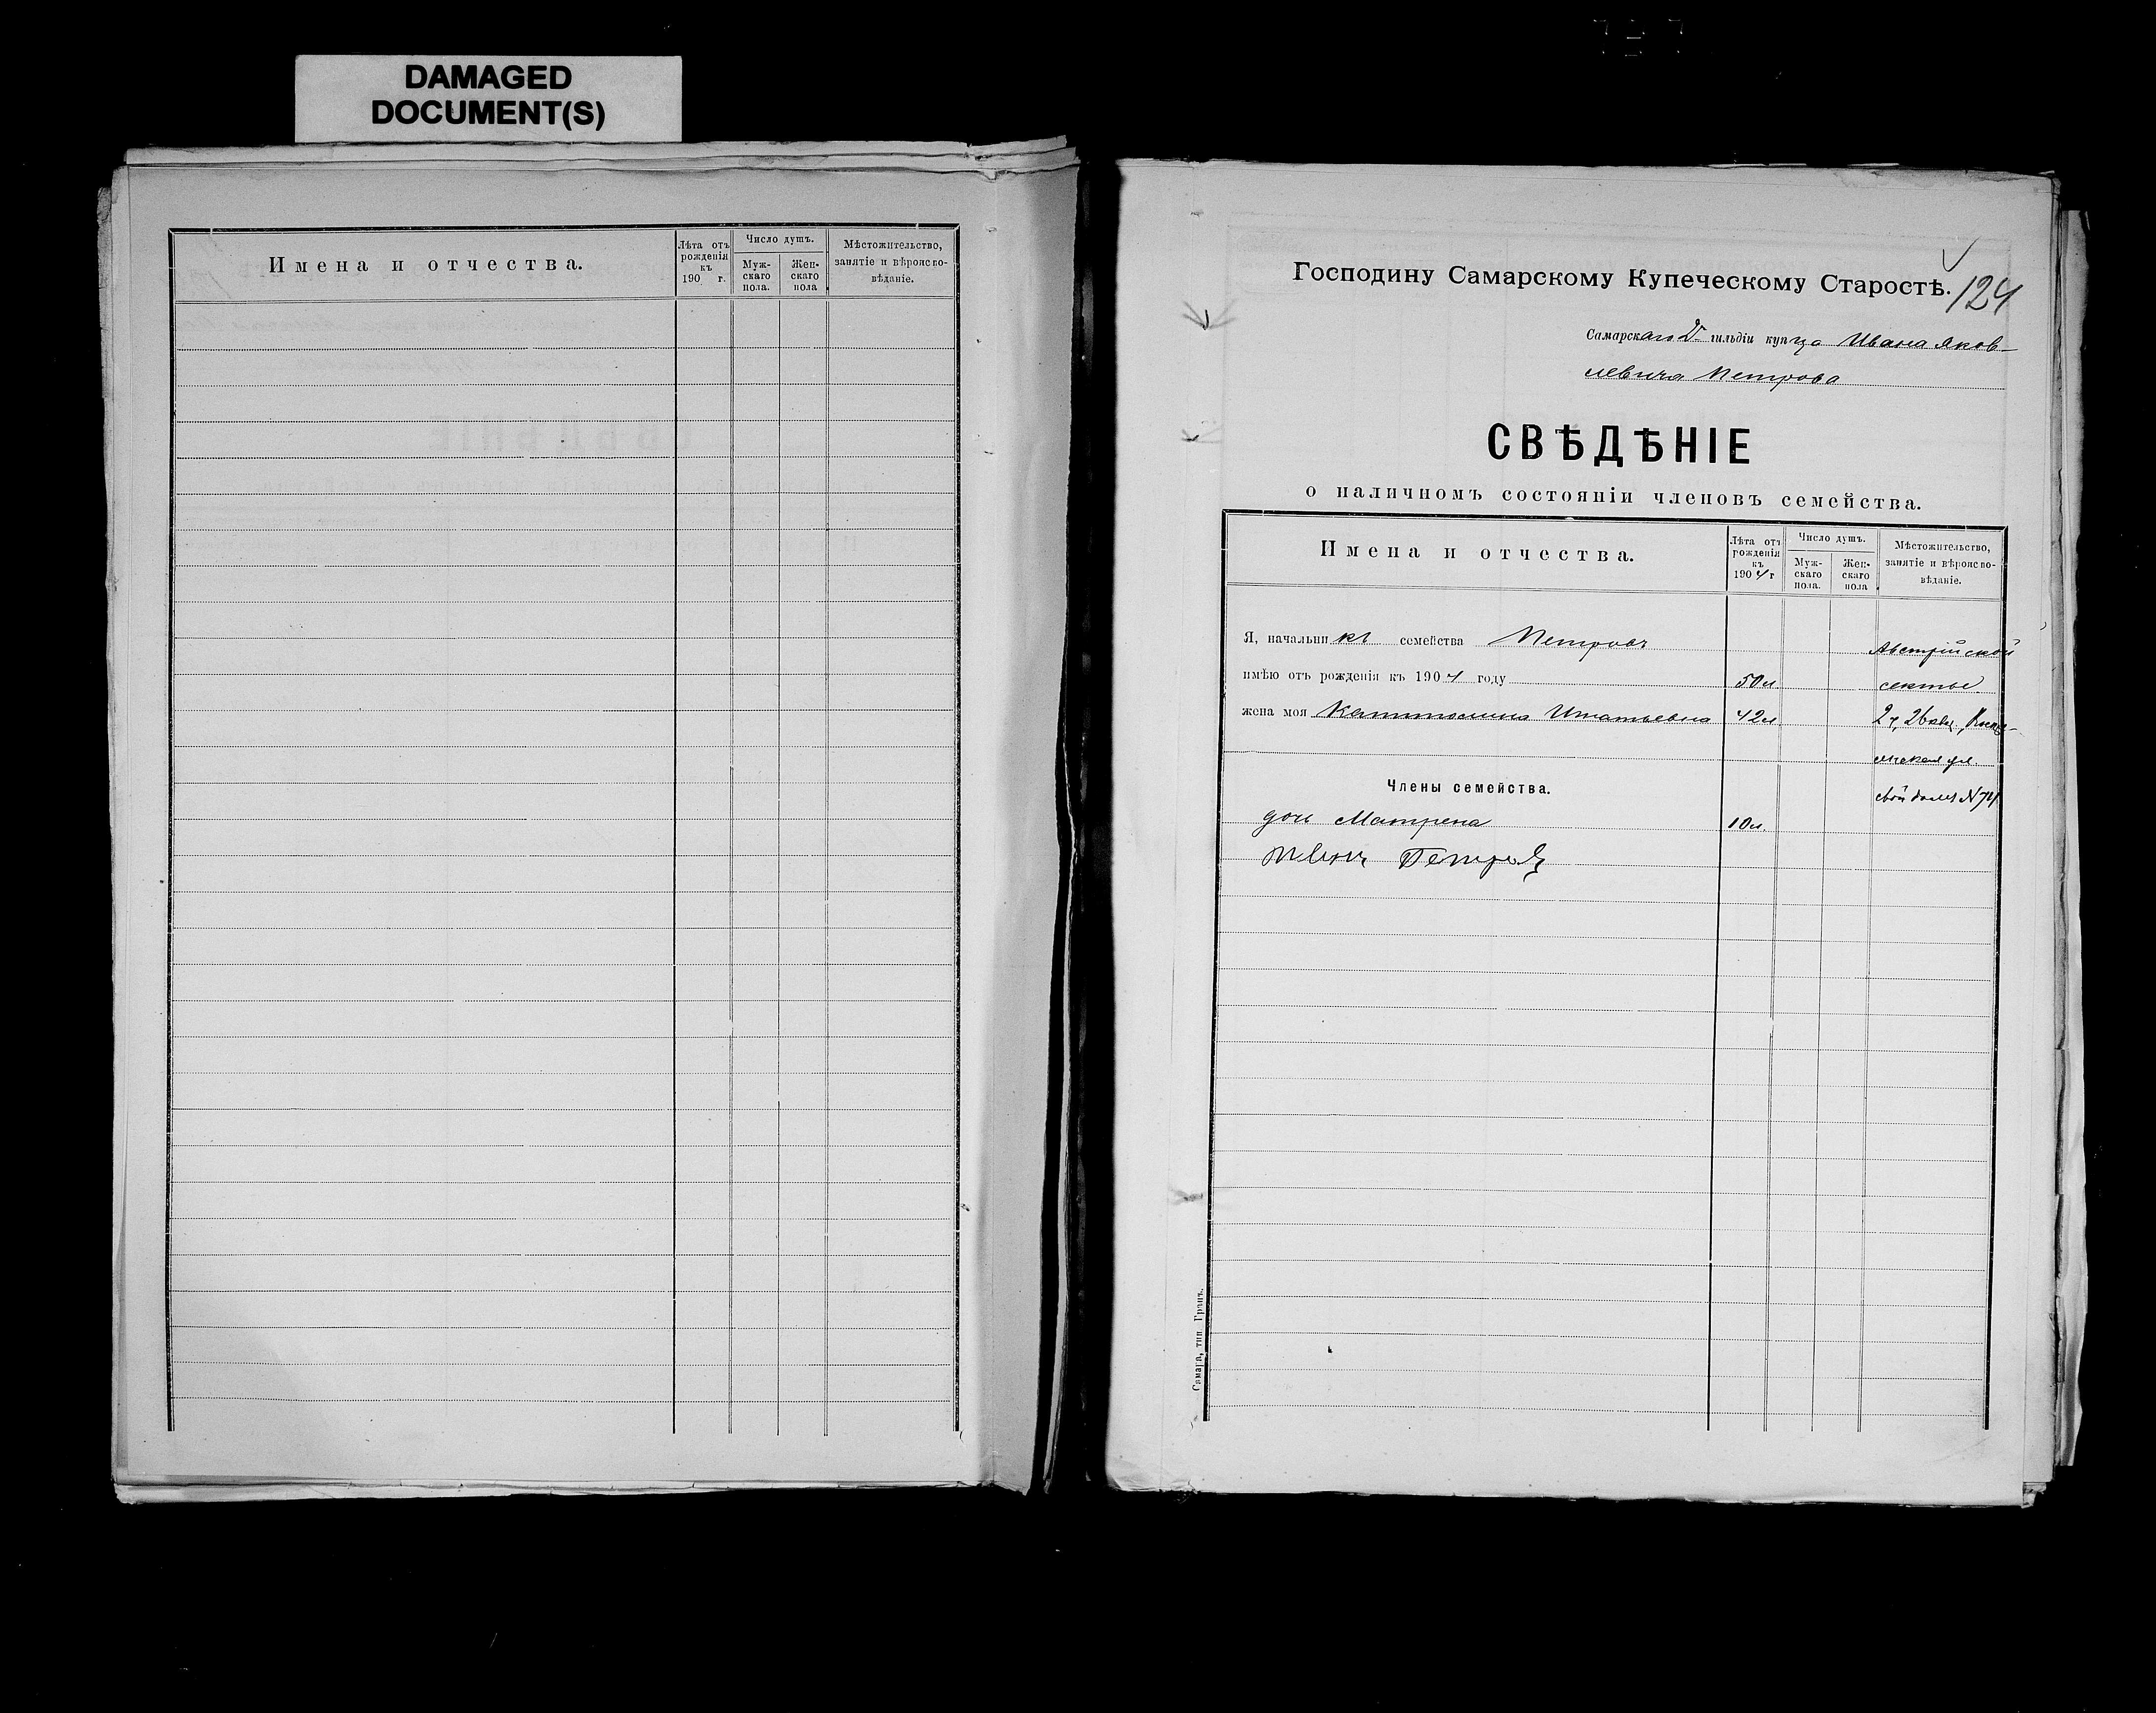 DAMAGED
DOCUMENT(S)
Имена и отчества.
Лѣта отъ рожденія къ 190 г.
Число душъ.
Мужскаго пола.
Женскаго пола
Мѣстожительство, занятіе и вѣроисповѣданіе.
Господину Самарскому Купеческому Старостѣ.
124
Самарскаго 2й гильдіи купца Ивана Яков-
левича Петрова
СВѢДѢНІЕ
о наличномъ состояніи членовъ семейства.
Имена и отчества.
Лѣта отъ рожденія къ 1904 г
Число душъ.
Мужскаго пола.
Женскаго пола
Мѣстожительство, занятіе и вѣроисповѣданіе.
Я, начальникъ семейства Петровъ
Австрійской
имѣю отъ рожденія къ 1904 году 50 л
секты.
жена моя Капитолина Игнатьевна 42 л
2 ч, 2 б кв.,
ул.
Члены семейства.
свой домъ № 74
дочь Матрена 10 л.
Иванъ Петровъ
Самара, тип. Гранъ.